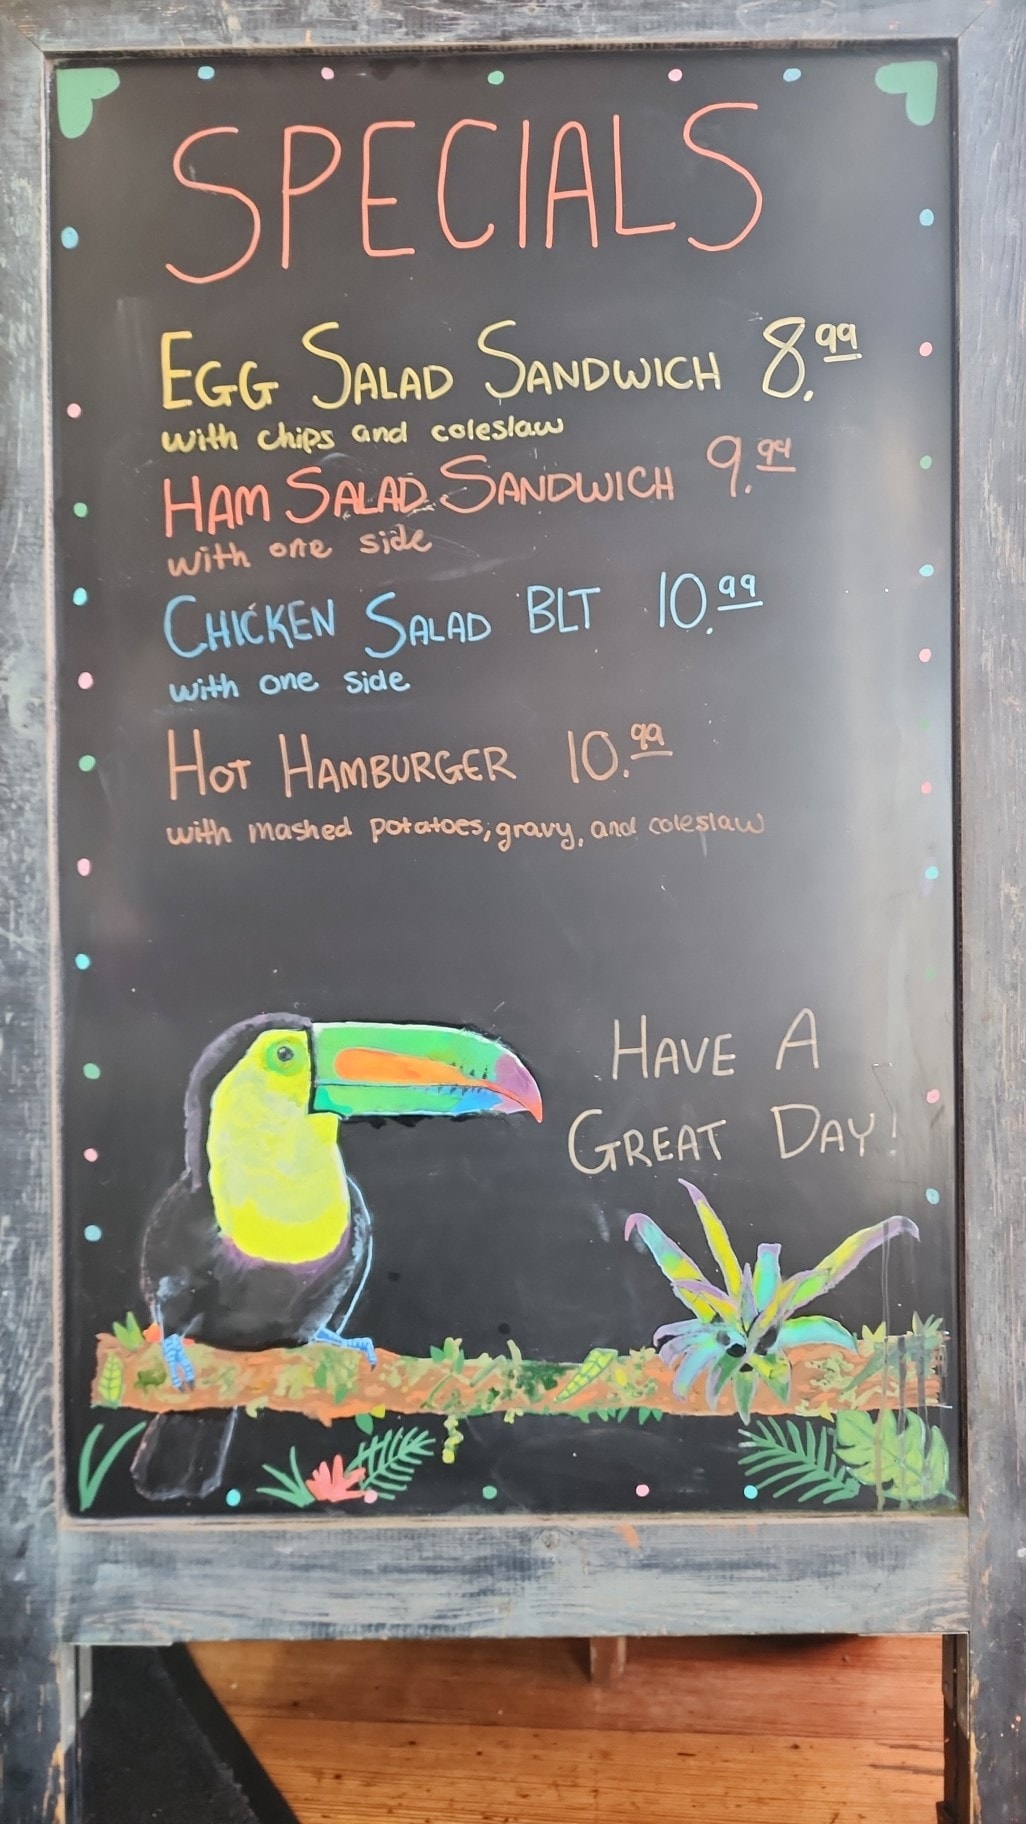 SPECIALS
EGG SALAD SANDWICH 8.99
with chips and coleslaw
HAM SALAD SANDWICH 9.99
with one side
CHICKEN SALAD BLT 10.99
with one side
HOT HAMBURGER 10.99
with mashed potatoes, gravy, and coleslaw
HAVE A
GREAT DAY!